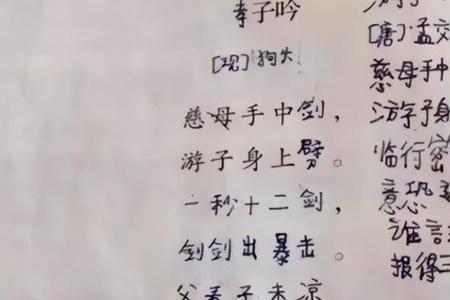 孝子吟
[现]狗头
慈母手中剑，
游子身上劈。
一秒十二剑，
剑剑出暴击。
父看子未凉
[唐]孟交
慈母手中
游子身
临行密
意恐
谁言
报得三